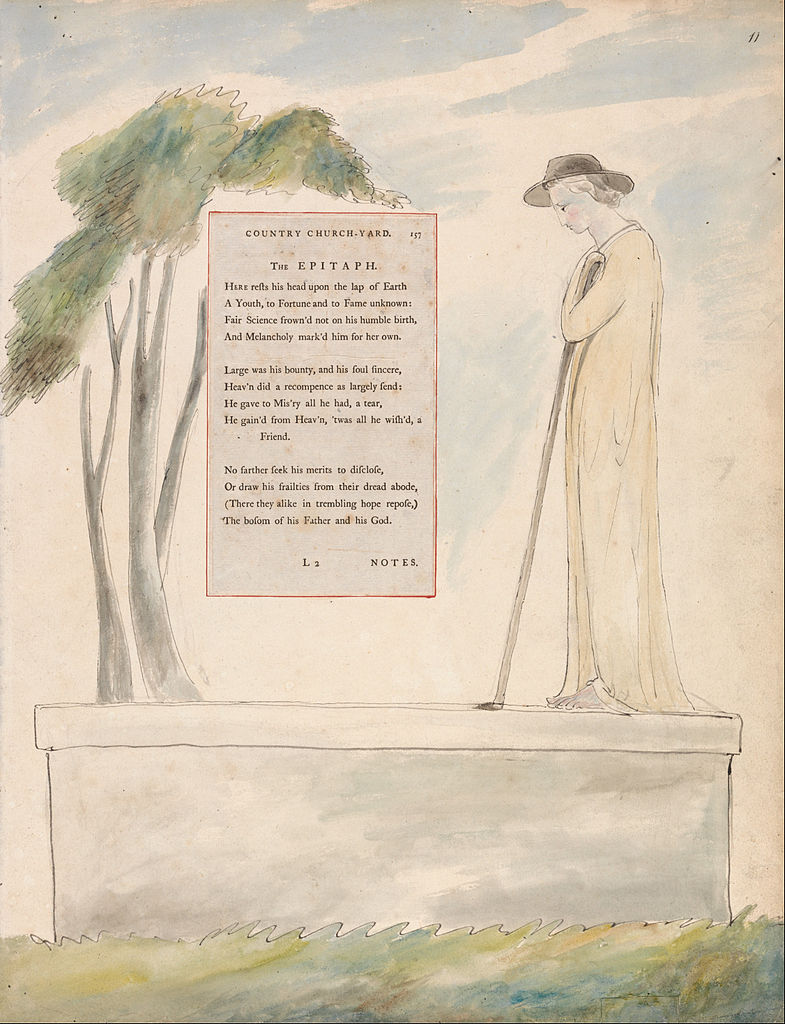 11
COUNTRY CHURCH-YARD. 157
The EPITAPH.
HERE reſts his head upon the lap of Earth
A Youth, to Fortune and to Fame unknown:
Fair Science frown'd not on his humble birth,
And Melancholy mark'd him for her own.
Large was his bounty, and his ſoul ſincere,
Heav'n did a recompence as largely ſend:
He gave to Miſ'ry all he had, a tear,
He gain'd from Heav'n, 'twas all he wiſh'd, a
Friend.
No farther ſeek his merits to diſcloſe,
Or draw his frailties from their dread abode,
(There they alike in trembling hope repoſe,)
The boſom of his Father and his God.
L 2 NOTES.